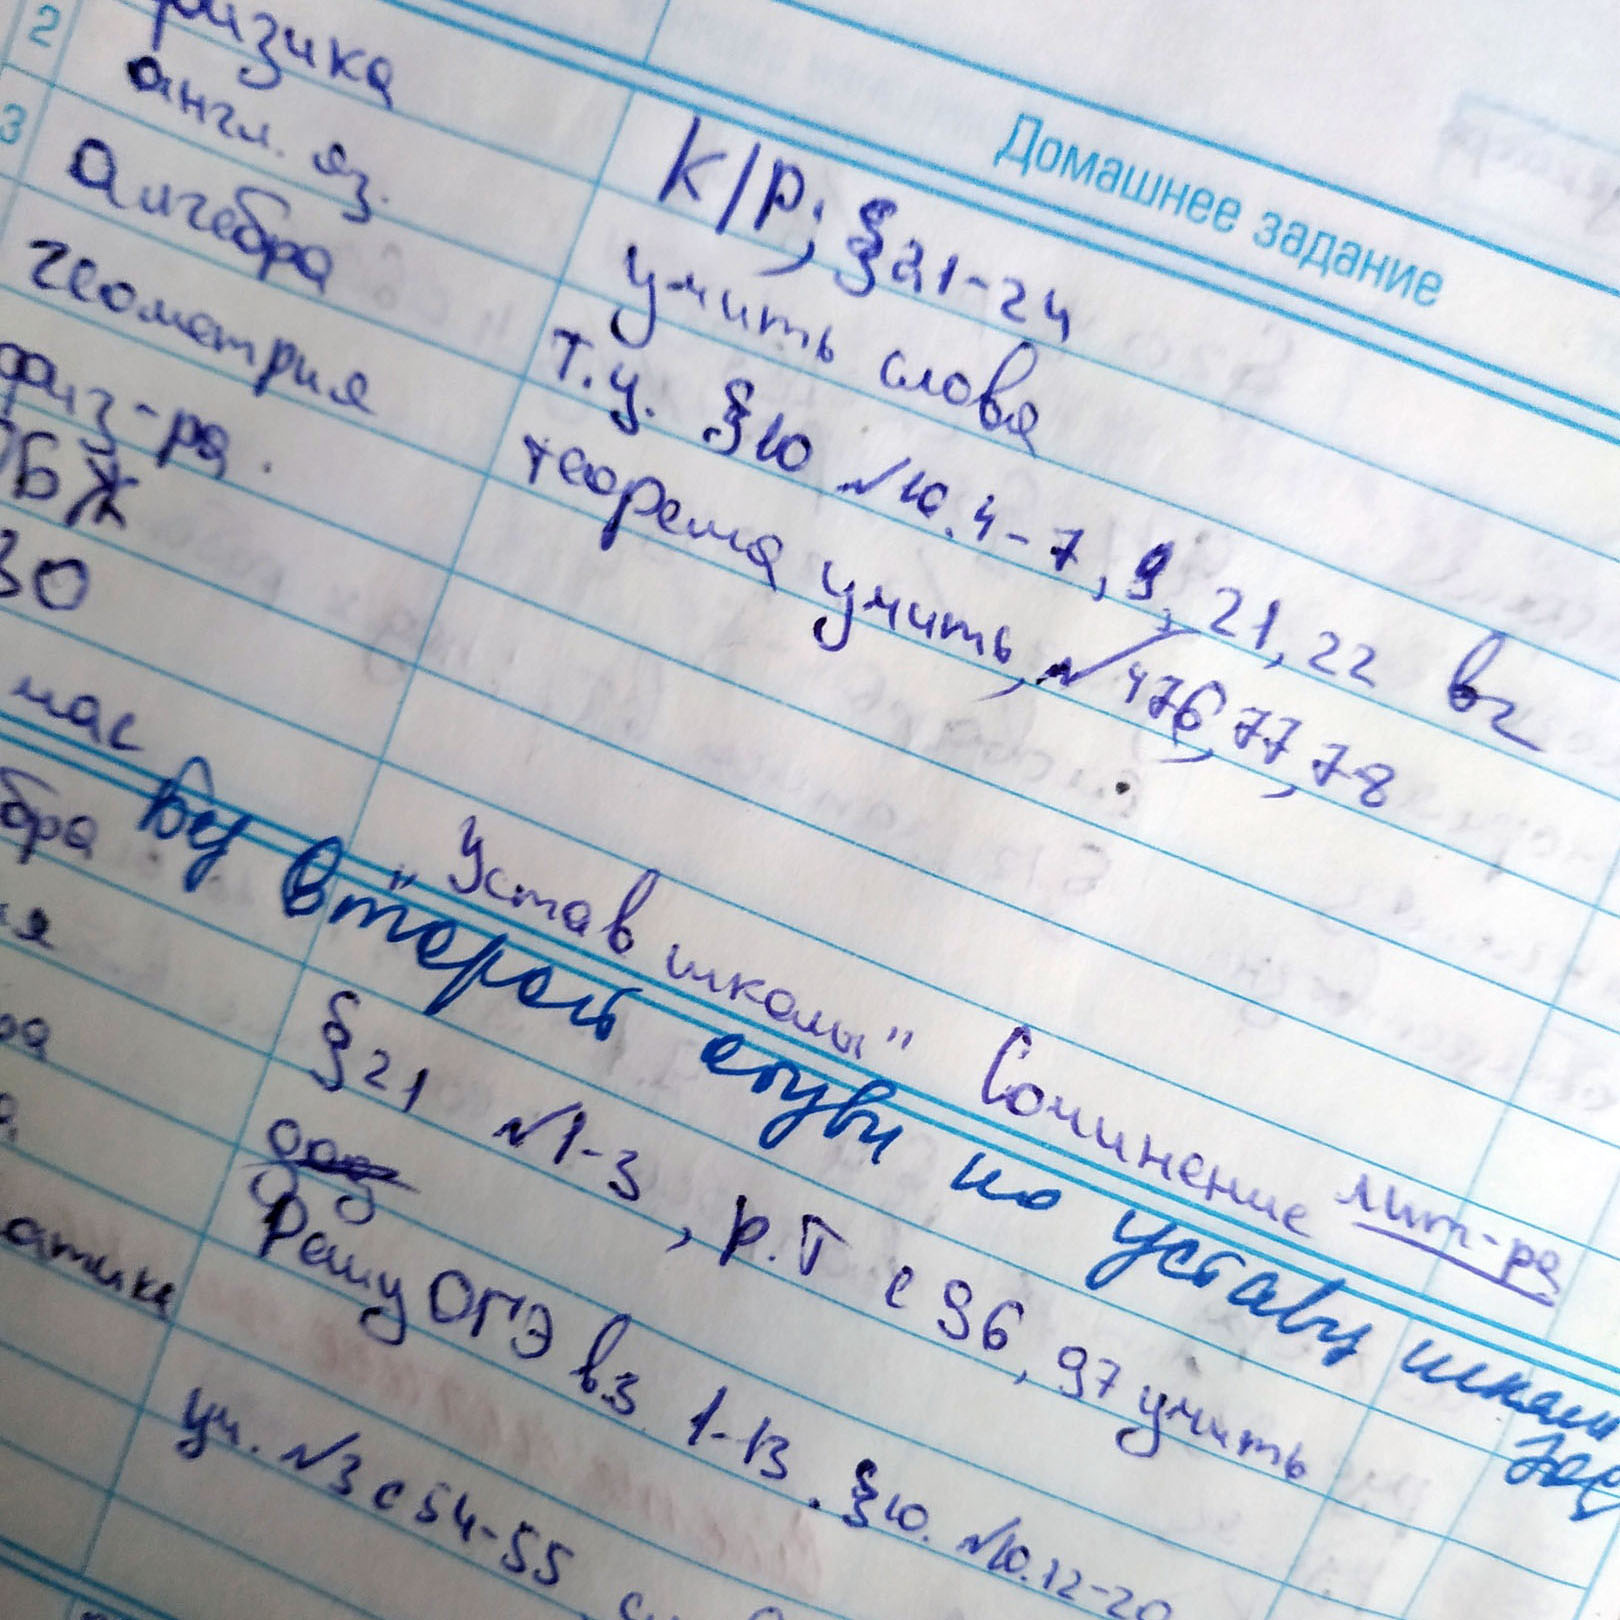 Домашнее задание
2 физика К/р, § 21-24
англ. яз. учить слова
3 алгебра т.у. §10 №10.4-7, 9, 21, 22 вг
геометрия теорема учить, №476, 77, 78
физ-ра.
ОБЖ
ЗО
час "Устав школы" Сочинение лит-ра
Без второй обуви по уставу школы
бра § 21 №1-3, р.Т с 96, 97 учить
ия
ра Решу ОГЭ в3 1-13. §10. №10.12-20
атика уч. №3 с 54-55